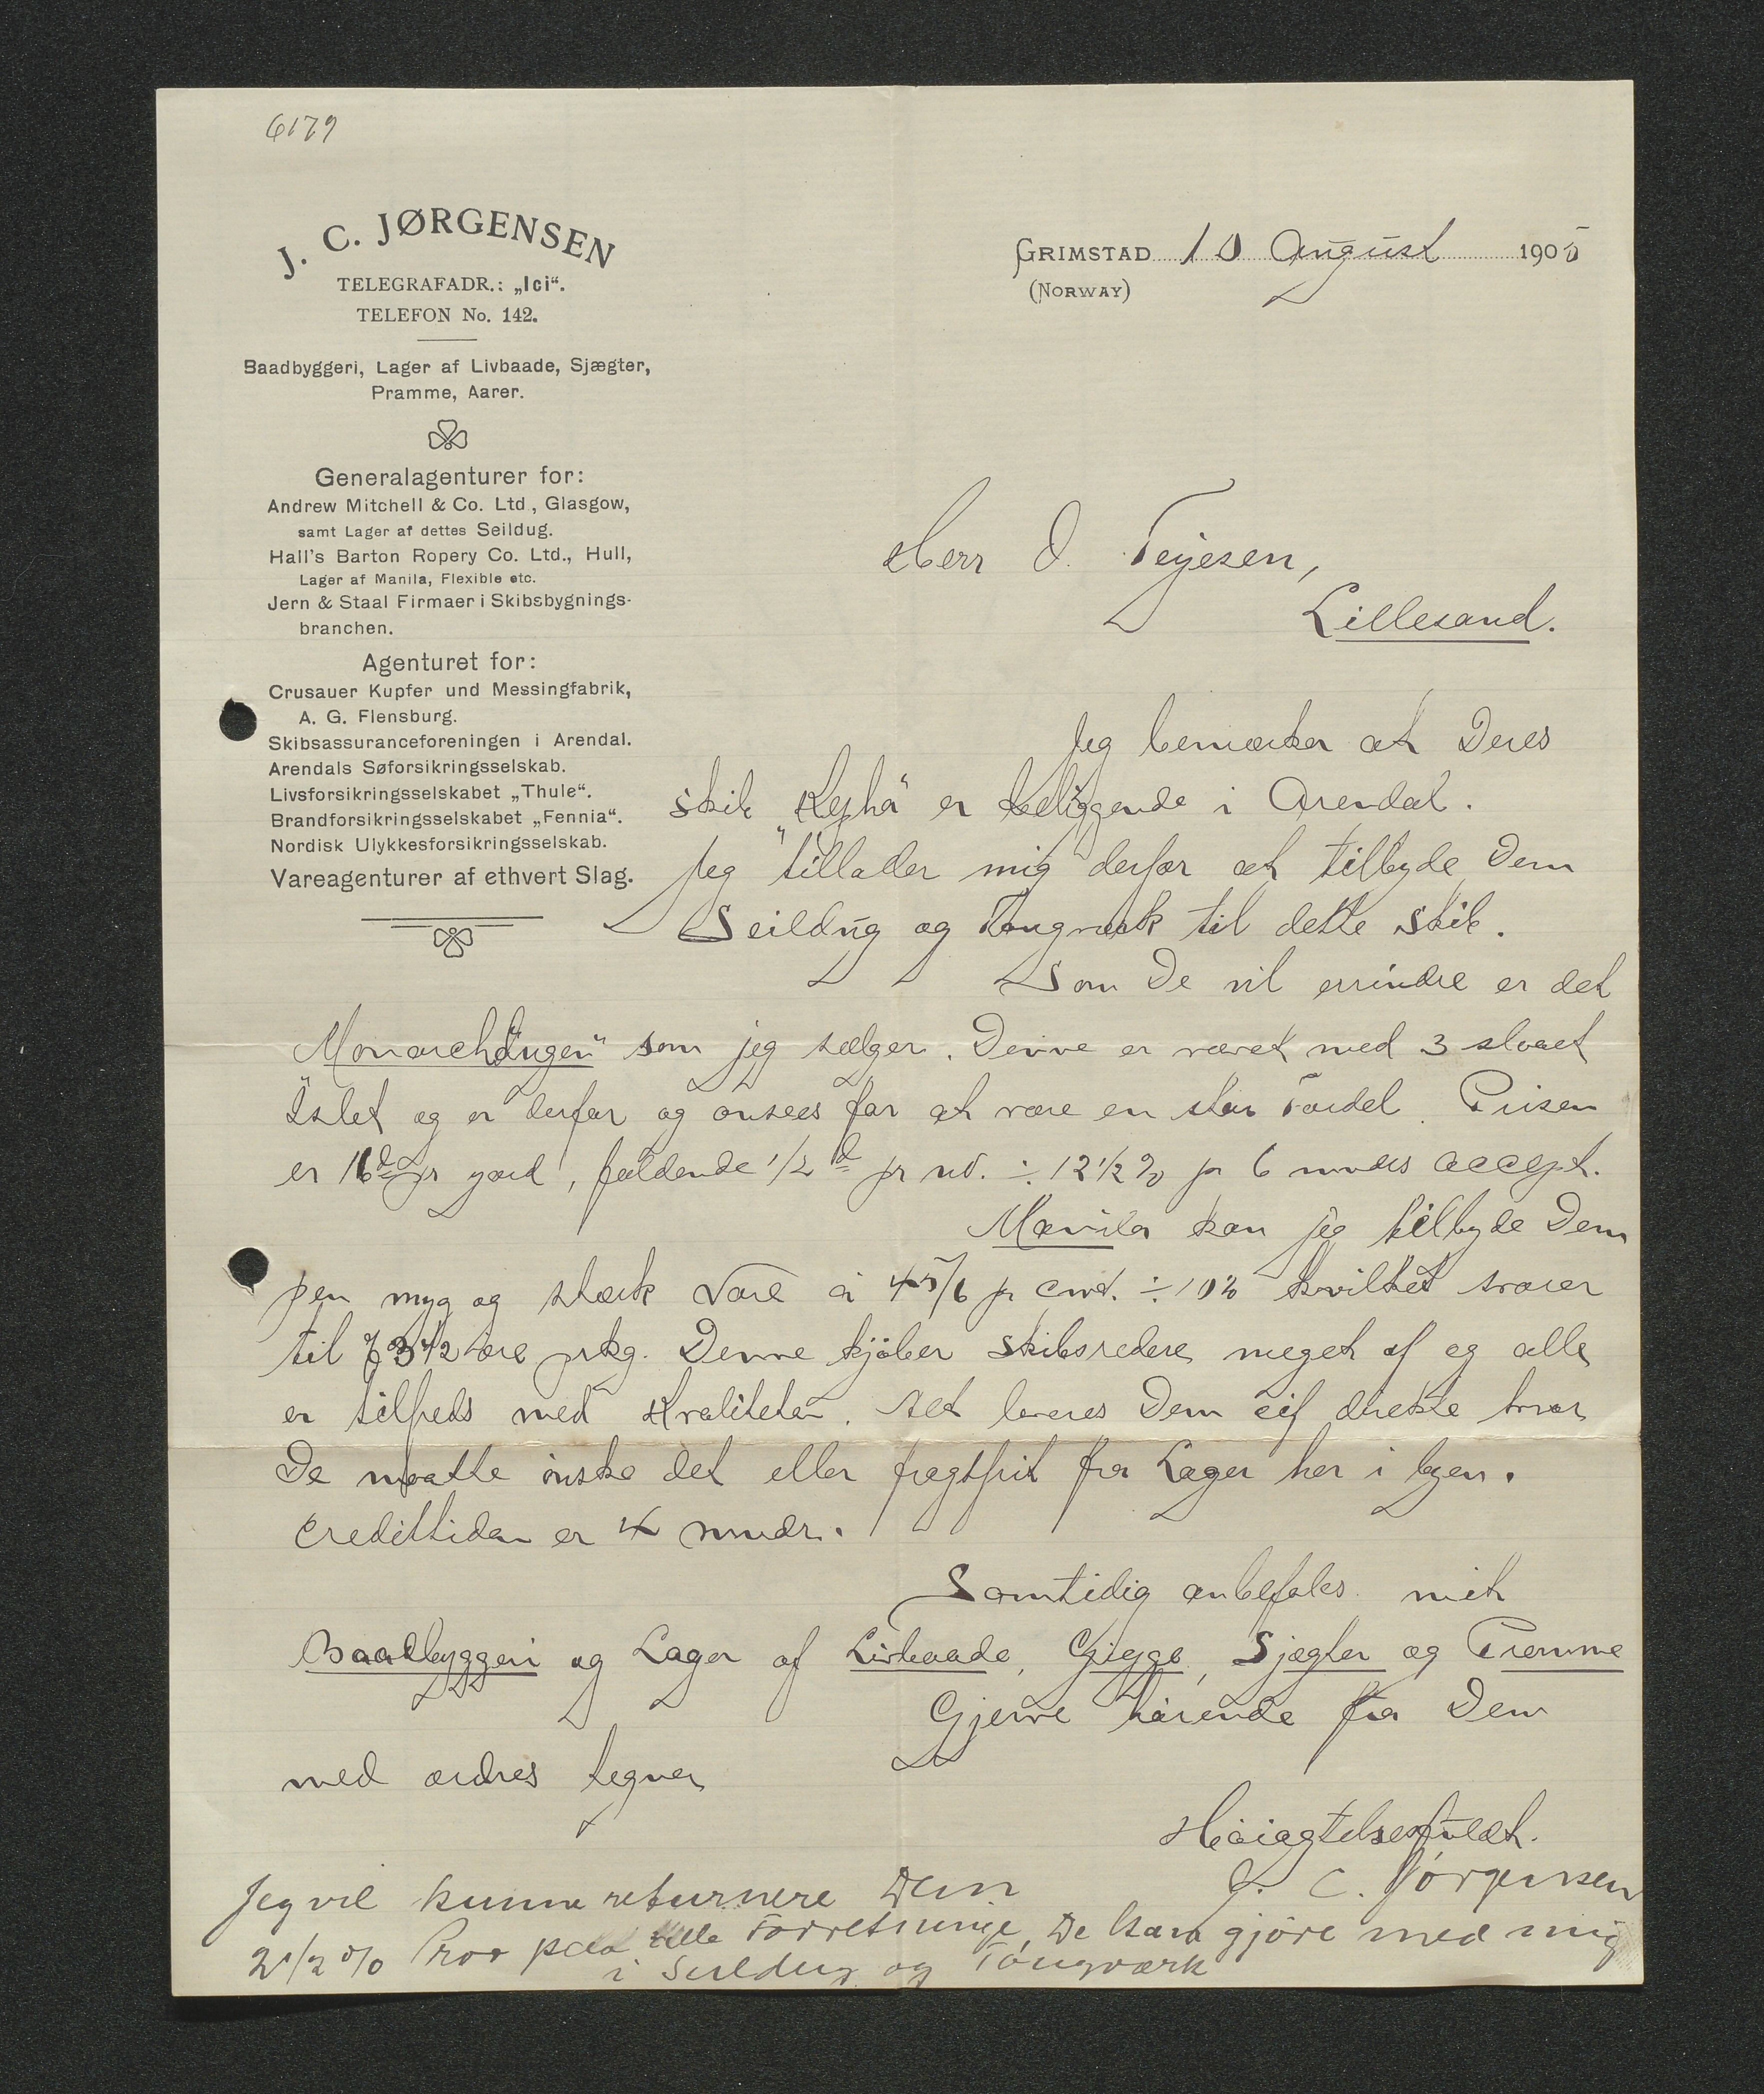 6179
J. C. JØRGENSEN
TELEGRAFADR.: „Ici“.
TELEFON No. 142.
Baadbyggeri, Lager af Livbaade, Sjægter,
Pramme, Aarer.
Generalagenturer for:
Andrew Mitchell & Co. Ltd., Glasgow,
samt Lager af dettes Seildug.
Hall's Barton Ropery Co. Ltd., Hull,
Lager af Manila, Flexible etc.
Jern & Staal Firmaer i Skibsbygnings-
branchen.
Agenturet for:
Crusauer Kupfer und Messingfabrik,
A. G. Flensburg.
Skibsassuranceforeningen i Arendal.
Arendals Søforsikringsselskab.
Livsforsikringsselskabet „Thule“.
Brandforsikringsselskabet „Fennia“.
Nordisk Ulykkesforsikringsselskab.
Vareagenturer af ethvert Slag.
GRIMSTAD 10 August 1905
(NORWAY)
Herr O. Terjesen,
Lillesand.
Jeg bemærker at Deres
skib er beliggende i Arendal.
Jeg tillader mig derfor at tilbyde Dem
Seildug og Tougværk til dette skib.
Som De vil errindre er det
„Monarchdugen“ som jeg sælger. Denne er vævet med 3 slaaet
Islet og er derfor og ansees for at være en stor Fordel. Prisen
er 16d pr yard, faldende 1/2d pr no. ÷ 12 1/2 % pr 6 mndrs accept.
Manila kan jeg tilbyde Dem
pen myg og stærk Vare á 45/6 pr cwt. ÷ 10% hvilket svarer
til 73 1/2 øre pr kg. Denne kjøber skibsredere meget af og alle
er tilfreds med Kvaliteten. Det leveres Dem cif direkte hvor
De maatte ønske det eller fragtfrit fra Lager her i byen.
Credittiden er 4 mndr.
Samtidig anbefales mit
Baadbyggeri og Lager af Livbaade, Gigge, Sjægter og Pramme
Gjerne hørende fra Dem
med ordres tegner
Høiagtelsesfuldt.
J. C. Jörgensen
Jeg vil kunne returnere Dem
2 1/2 % Pro paa alle Forretninge De kan gjöre med mig
i Seildug og Tougværk